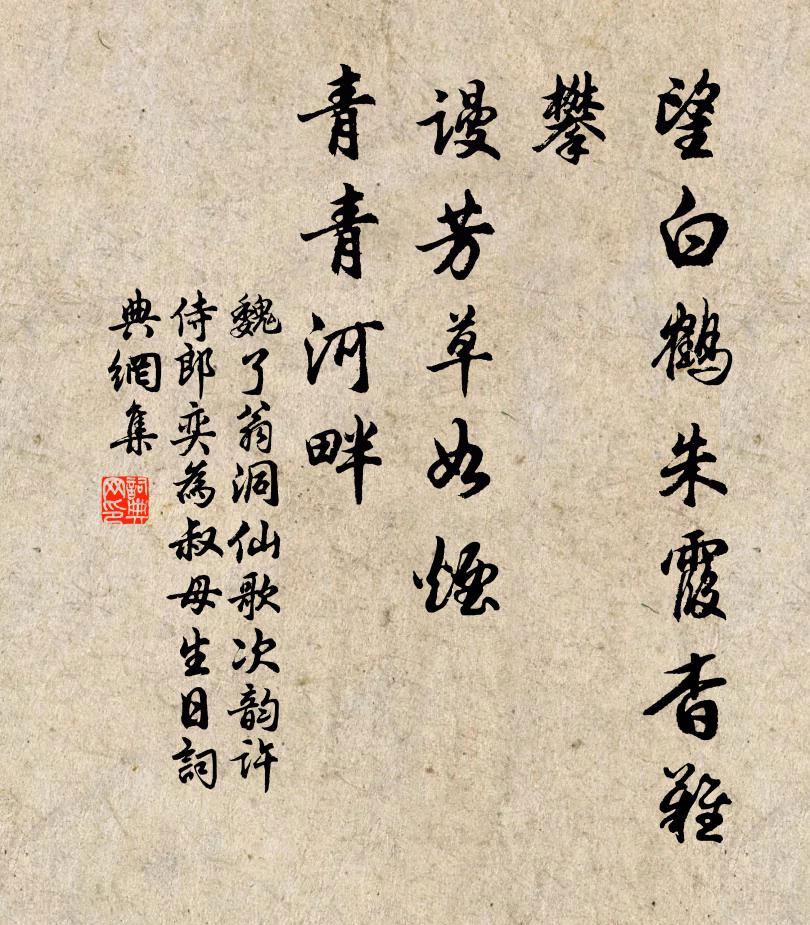 望白鶴朱霞杳難
攀
謾芳草如煙
青青河畔
魏了翁洞仙歌次韵许
侍郎奕為叔母生日詞
典網集
詞典
网印